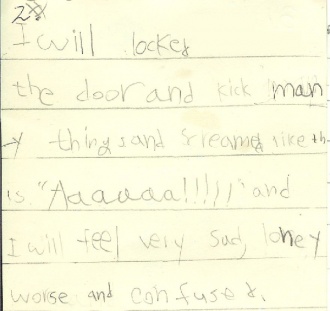 2
I will locked
the door and kick man
y things and screamed like th
is "Aaaaaa!!!!!" and
I will feel very sad, loney
worse and confused.